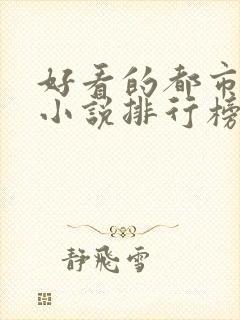 好看的都市
小说排行榜
静飛雪